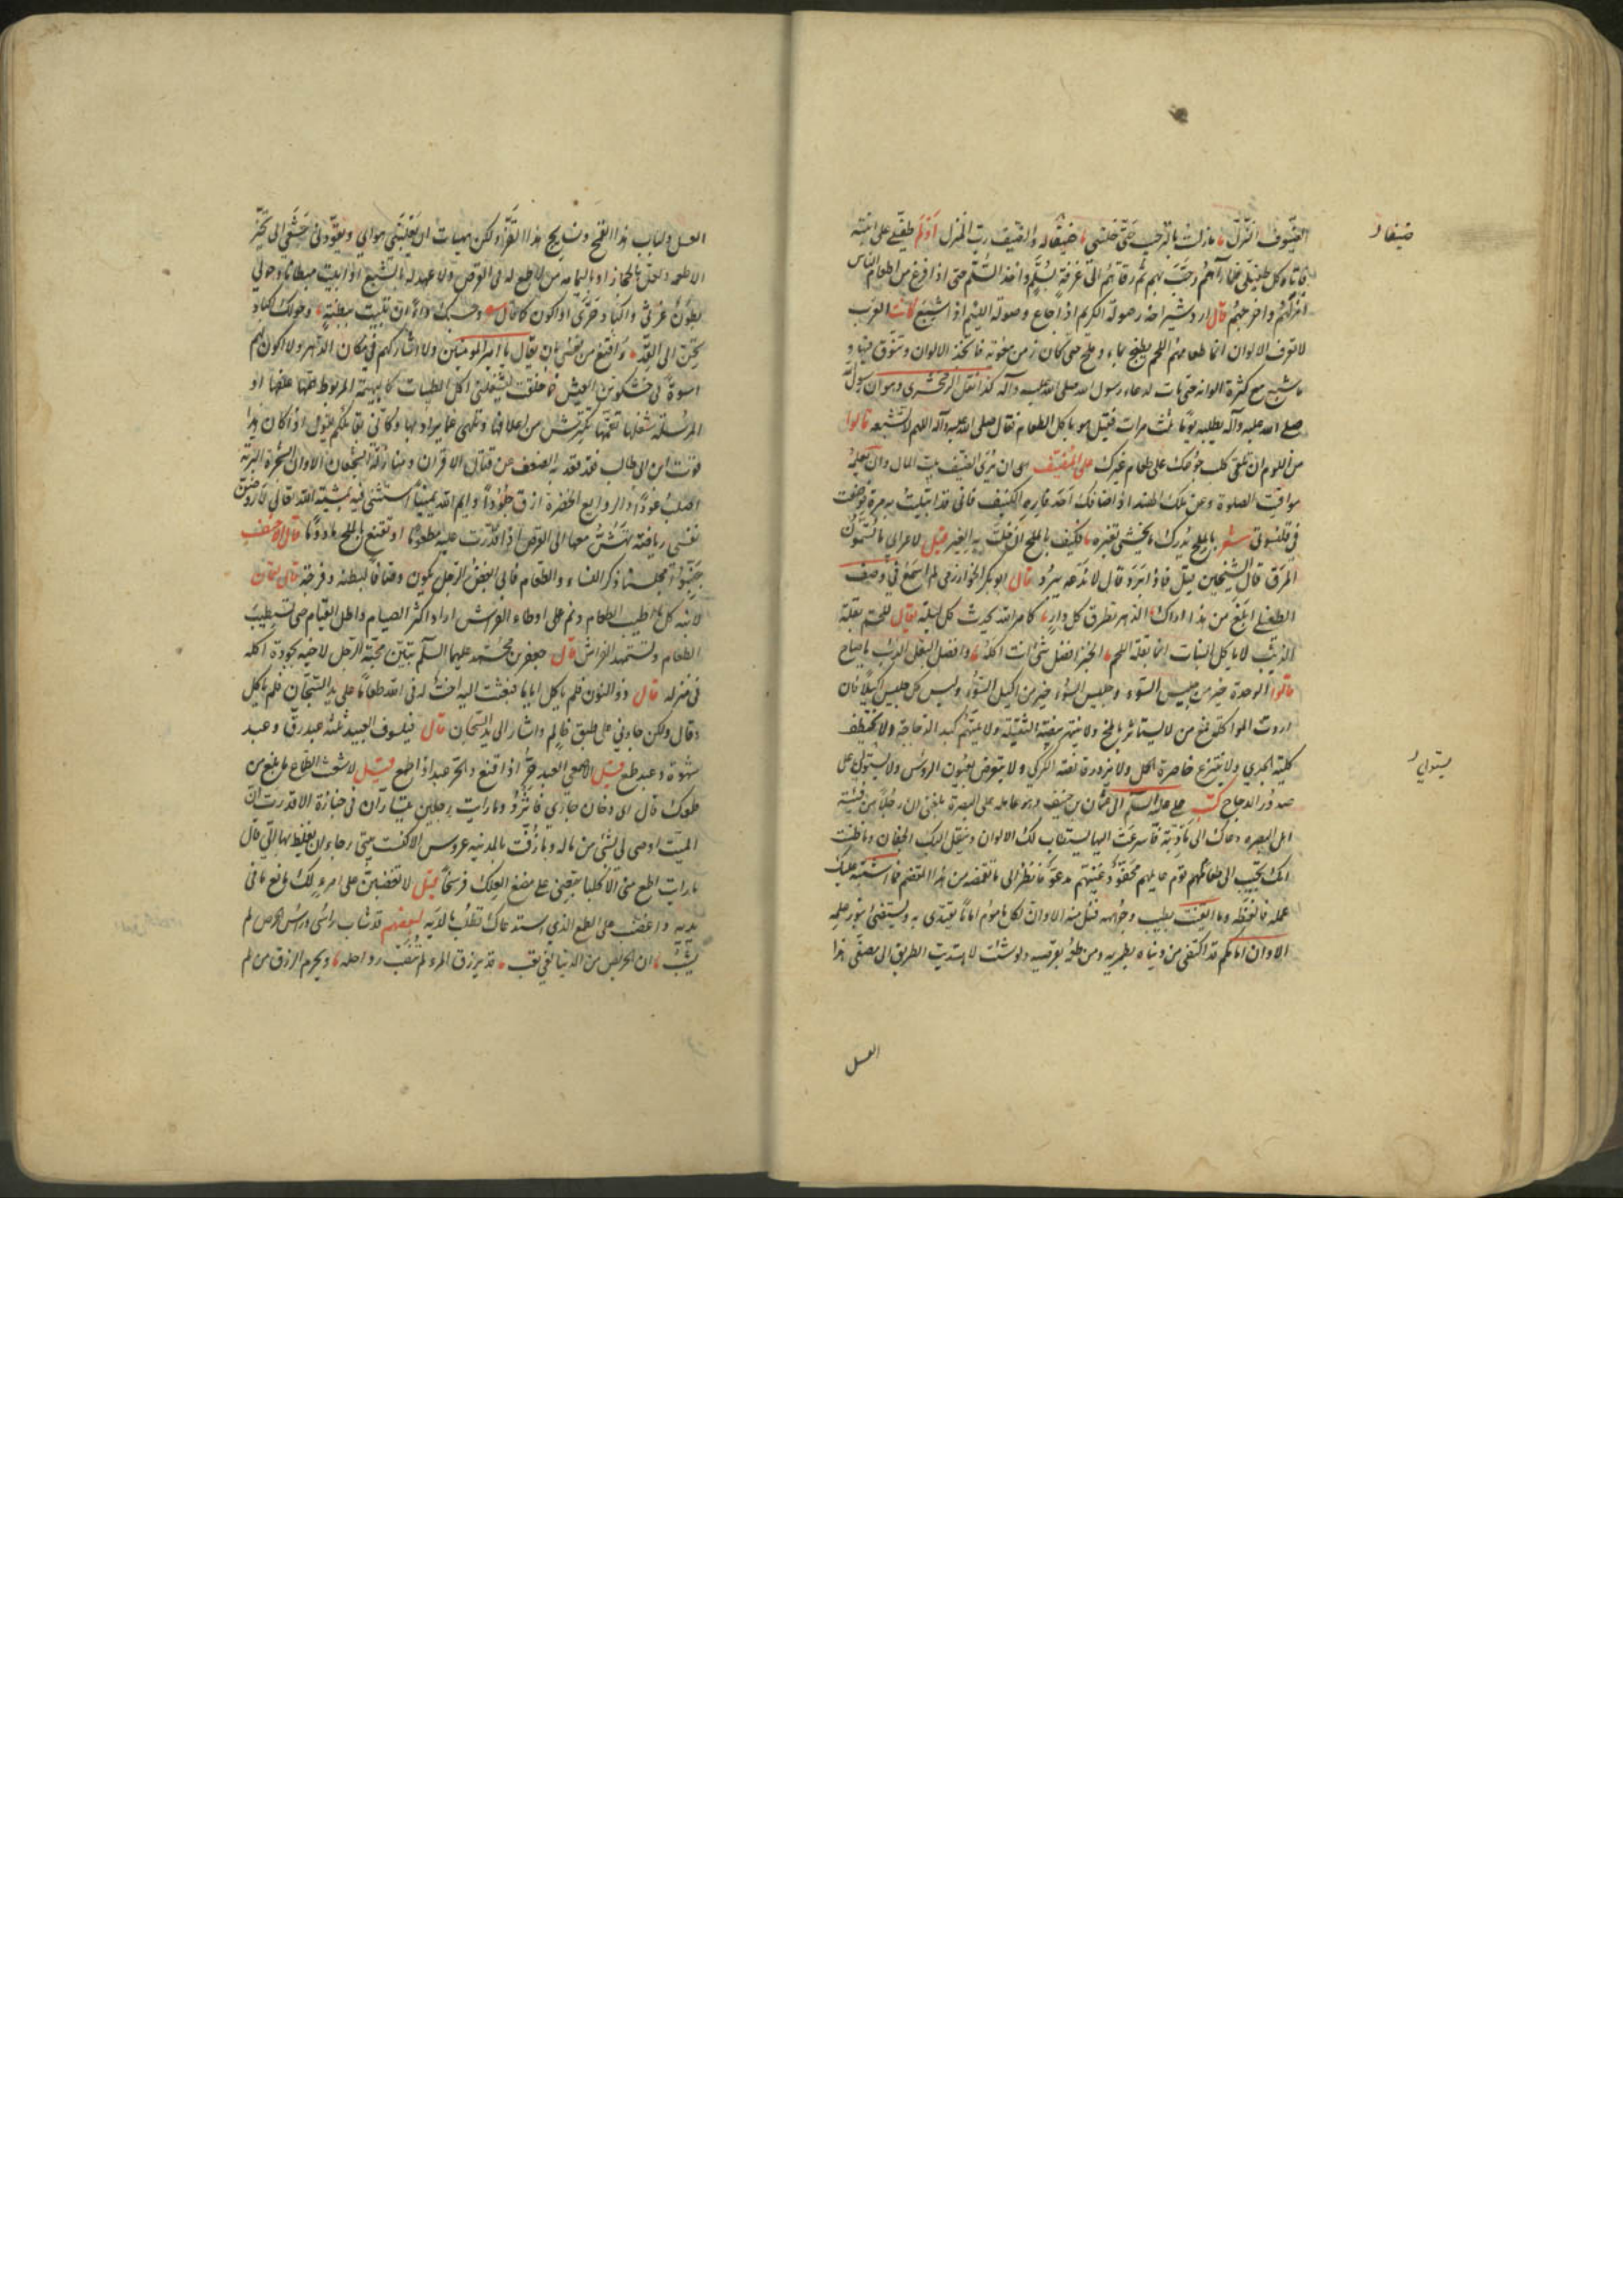 الضيوف النزل ما زلت بالترحيب حتى خلتني ضيفا له والضيف رب المنزل أولم طفيلي على ابنته
فاتاه كل طفيلي فلما رآهم رحب بهم ثم رقاهم الى غرفة بسلم واخذ السلم حتى اذا فرغ من اطعام الناس
انزلهم واخرجهم قال اردشير احذروا صولة الكريم اذا جاع وصولة اللئيم اذا شبع كانت العرب
لا تعرف الالوان انما طعامهم اللحم يطبخ بماء وملح حتى كان زمن معوية فاتخذ الالوان وتنوق فيها و
ما شبع مع كثرة الوانه حتى مات لدعاء رسول الله صلى الله عليه وآله كذا نقل الزمخشري وهو ان رسول الله
صلى الله عليه وآله يطلبه يوما ثلث مرات فقيل هو ياكل الطعام فقال صلى الله عليه وآله اللهم لا تشبعه قالوا
من اللوم ان تلقى كلب جوعك على طعام غيرك على المضيف ان يرى الضيف بيت المال وان يعلمه
مواقيت الصلوة وعن ملك الهند اذا اضافك احد فاره الكنيف فاني قد ابتليت به مرة فوضعت
في قلنسوتي شعر بالملح ندرك ما يخشى تغيره فكيف بالملح ان حلت به الغير قيل لاعرابي ما تسمون
المرق قال السخين قيل فاذا برد قال لا ندعه يبرد قال ابو بكر الخوارزمي لم اسمع في وصف
الطفيلي ابلغ من هذا اراك الدهر تطرق كل دار كامر الله يحدث كل ليلة يقال للحم بقلة
الذئب لا ياكل النبات انما بقله اللحم الخبز افضل شيء انت آكله وافضل البقل بقل الذئب يا صاح
قالوا الوحدة خير من جليس السوء وجليس السوء خير من اكيل السوء وليس كل جليس اكيلا فان
اردت المواكلة فمع من لا يستاثر بالمخ ولا ينتهز بيضة البقيلة ولا يلتهم كبد الدجاجة ولا يختطف
كلية الجدي ولا ينتزع خاصرة الحمل ولا يزدرد قانصة الكركي ولا يتعرض لعيون الرؤس ولا يستولي على
صدور الدجاج كتب علي عليه السلم الى عثمان بن حنيف وهو عامله على البصرة بلغني ان رجلا من فتية
اهل البصره دعاك الى مأدبة فاسرعت اليها يستطاب لك الالوان وينقل اليك الجفان وما ظننت
انك تجيب الى طعام قوم عايلهم مجفو وغنيهم مدعو فانظر الى ما تقضمه من هذا المقضم فما اشتبه عليك
علمه فالفظه وما ايقنت بطيب وجوهه فنل منه الا وان لكل مأموم اماما يقتدي به ويستضئ بنور علمه
الا وان امامكم قد اكتفى من دنياه بطمريه ومن طعمه بقرصيه ولو شئت لاهتديت الطريق الى مصفى هذا
العسل
ضيفا له
يستولي
العسل ولباب هذا القمح ونسايج هذا القز ولكن هيهات ان يغلبني هواي ويقودني جشعي الى تخير
الاطعمه ولعل بالحجاز او باليمامه من لا طمع له في القرص ولا عهد له بالشبع او ابيت مبطانا وحولي
بطون غرثى واكباد حرى او اكون كما قال وحسبك داء ان تبيت ببطنة وحولك اكباد
تحن الى القد أاقنع من نفسي بان يقال يا امير المومنين ولا اشاركهم في مكاره الدهر ولا اكون لهم
اسوة في خشونة العيش فما خلقت ليشغلني اكل الطيبات كالبهيمة المربوطة همها علفها او
المرسلة شغلها تقممها تكترش من اعلافها وتلهى عما يراد بها وكاني بقائلكم يقول اذا كان هذا
قوت ابن ابي طالب فقد قعد به الضعف عن قتال الاقران ومنازلة الشجعان الا وان الشجرة البرية
اصلب عودا والروايع الخضرة ارق جلودا وايم الله يمينا استثنى فيه بمشية الله تعالى لاروضن
نفسي رياضة تهش معها الى القرص اذا قدرت عليه مطعوما وتقنع بالملح مأدوما قال الاحنف
جنبوا مجلسنا ذكر النساء والطعام فاني ابغض الرجل يكون وصافا لبطنه وفرجه قال لقمان
لابنه كل اطيب الطعام ونم على اوطاء الفرش اراد اكثر الصيام واطل القيام حتى تستطيب
الطعام وتستمهد الفراش قال جعفر بن محمد عليهما السلم تبين محبة الرجل لاخيه بجودة اكله
في منزله قال ذو النون فلم ياكل اياما فبعثت اليه اخت له في الله طعاما على يد السجان فلم ياكل
وقال ولكن جاءني على طبق ظالم واشار الى يد السجان قال فيلسوف العبيد ثلثة عبد رق وعبد
شهوة وعبد طمع قيل لاصمعي العبد حر اذا قنع والحر عبد اذا طمع قيل لاشعب الطماع ما بلغ من
طمعك قال ارى دخان جاري فاثرد وما رايت رجلين يتساران في جنازة الا قدرت ان
الميت اوصى لي بشئ من ماله وما زفت بالمدينه عروس الا كنست بيتي رجاء ان يغلط بها الي قال
ما رايت اطمع مني الا كلبا تبعني على مضغ العلك فرسخا قيل لا تغضبن على امرء لك مانع ما في
يديه واغضب على الطمع الذي استدعاك تطلب ما لديه لبعضهم قد شاب راسي وراس الحرص لم
يشب ان الحريص من الدنيا لفي تعب قد يرزق المرء لم تتعب رواحله ويحرم الرزق من لم